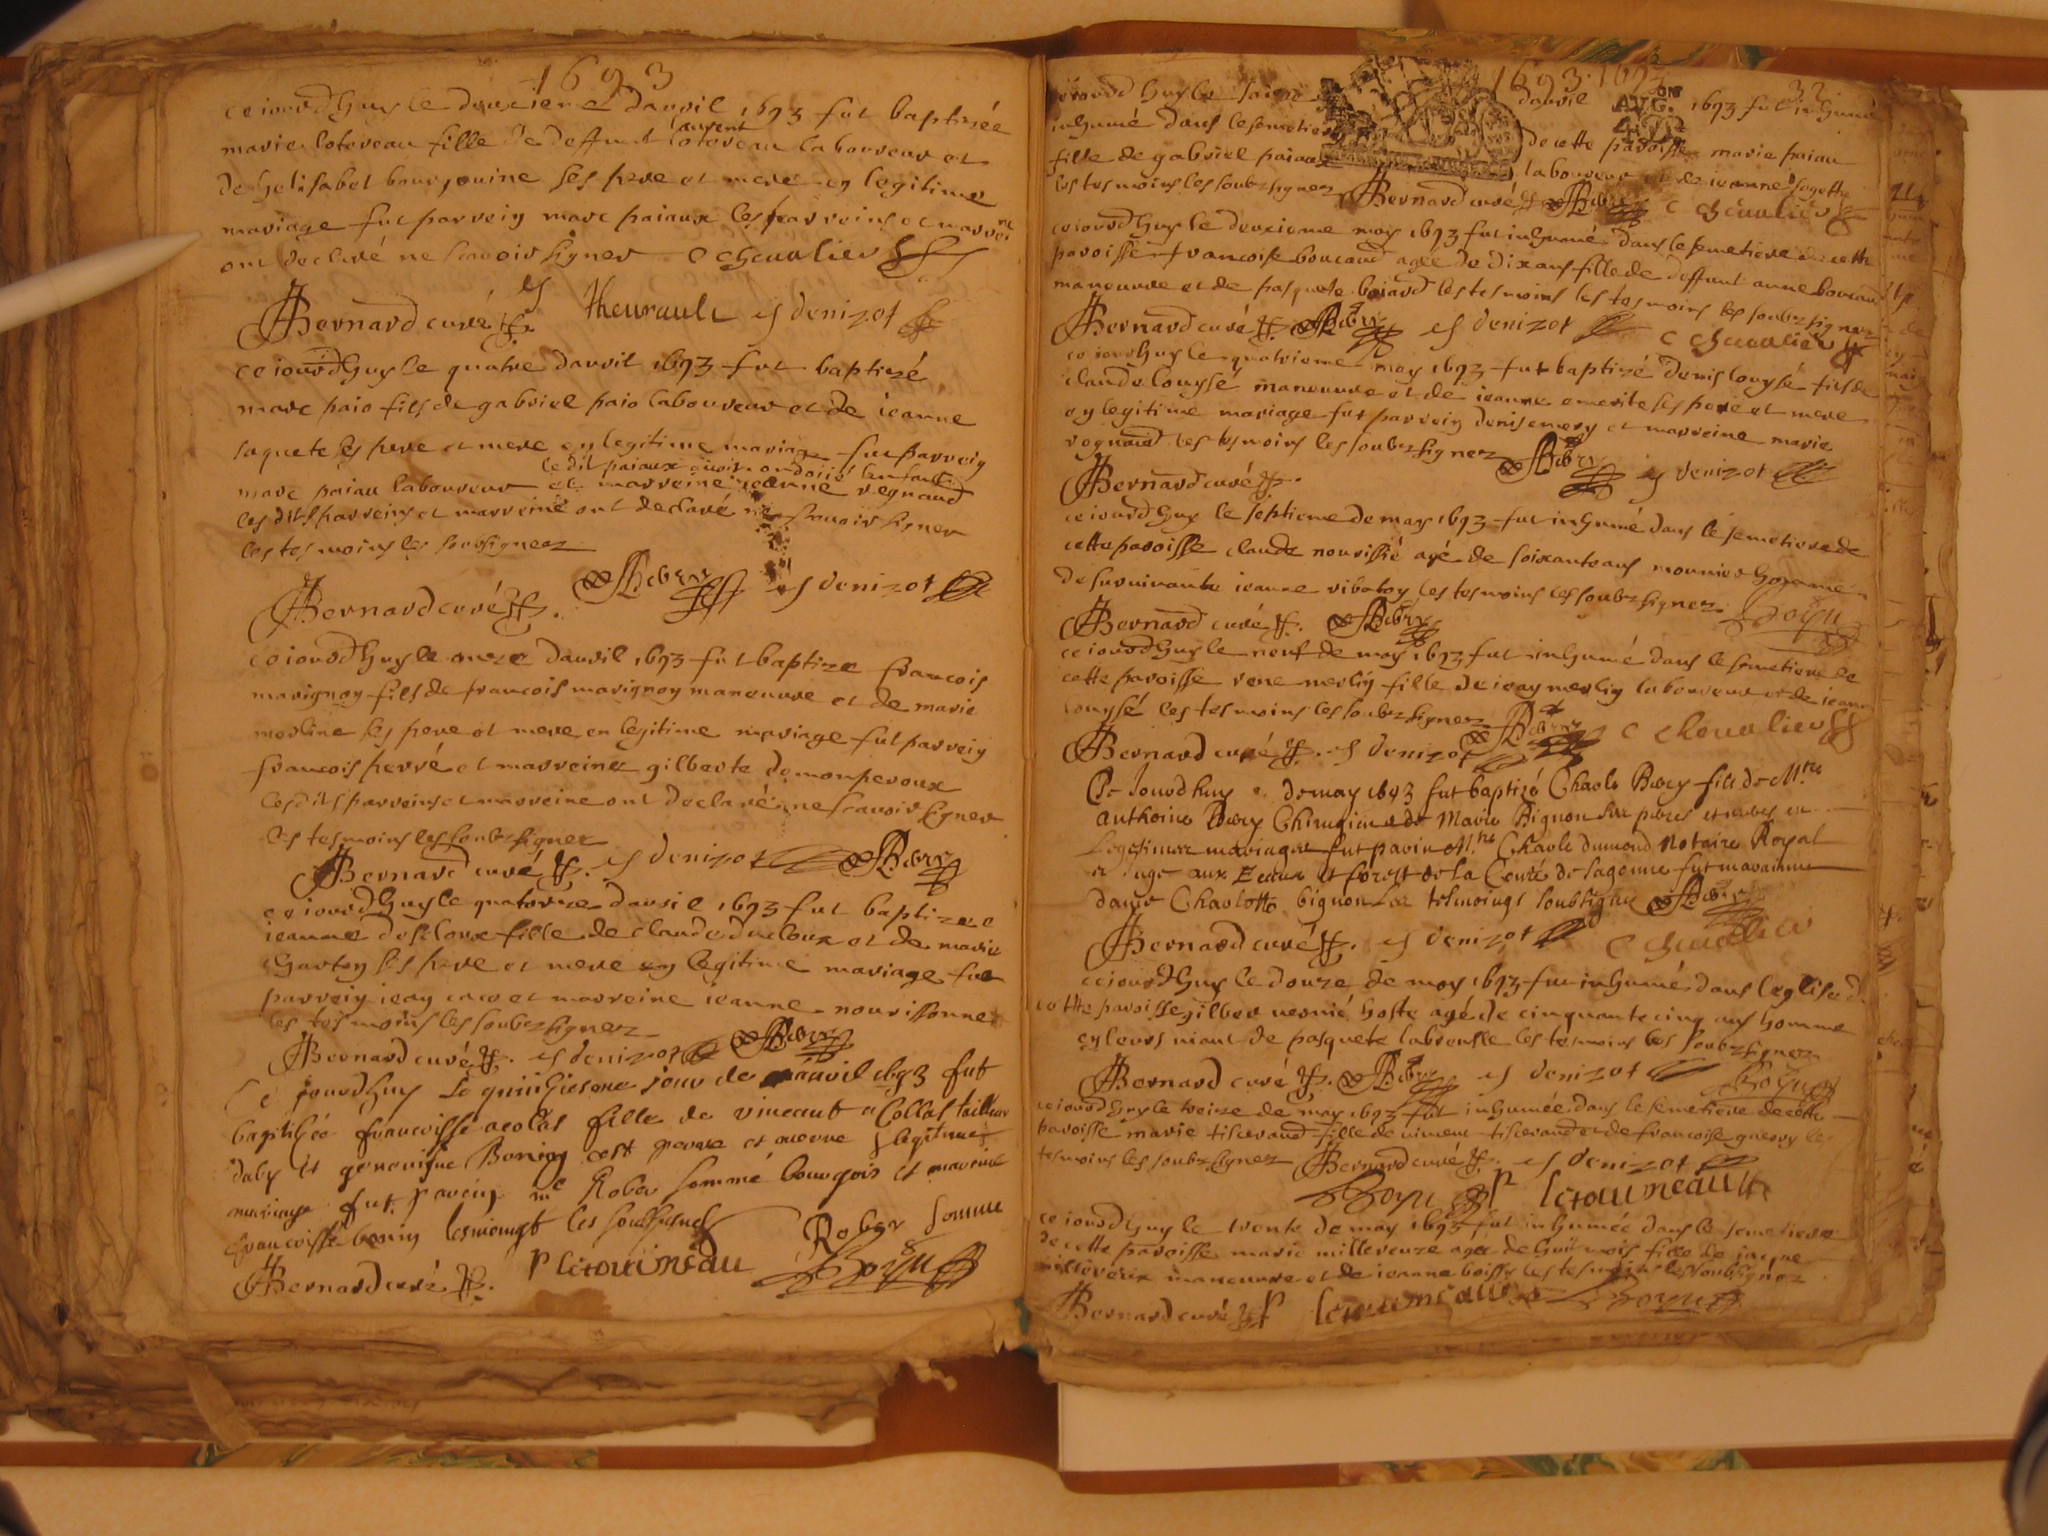 1693
ce iourd huy le deuxiene dauril 1693 fut baptizée
marie lotereau fille de deffunt laurent lotereau laboureur et
de helisabet bourgouine ses pere et mere en legitime
mariage fut parrein marc paiaux les parreins et marreine
ont declaré ne scauoir signer c cheualier
Bernard curé theurault es denizot
ce iourd huy le quatre dauril 1693 fut baptizé
marc paio fils de gabriel paio laboureur et de ieanne
saquete ses pere et mere en legitime mariage fut parrein
ledit paiaux ondoié lenfant
marc paiau laboureur et marreine ieanne regnaud
lesdits parreins et marreine ont declaré ne scauoir signer
les tesmoins les soubsignez
Bernard curé es denizot
ce iourd huy le onze dauril 1693 fut baptize francois
marignoy fils de francois marignoy maneuure et de marie
morline ses pere et mere en legitime mariage fut parrein
francois perré et marreine gilberte demonperoux
lesdits parreins et marreine ont declaré ne scauoir signer
les tesmoins les soubz signez
Bernard curé es denizot
ce iourd huy le quatorze dauril 1693 fut baptizee
ieanne descloux fille de claude ducloux et de marie
charton ses pere et mere en legitime mariage fut
parrein iean caco et marreine ieanne nourissonne
les tesmoins les soubz signez
Bernard curé es denizot
Ce jourdhuy le quinhiesme jour de auril 1693 fut
baptisée francoisse acolas fille de vincant acollas tailleur
daby et geneuiefue Bonin cest peere et meere legitime
mariage fut parein me Rober sommé bourgois et mareine
francoisse bonin tesmoingt les soussignes
Rober somme
Bernard curé P letourneau Boyu
1693 1693 32
ce iourd huy le dauril AVG. ON 1693 fut inhumé
inhumé dans le semetiere de cette paroisse marie paiau
fille de gabriel paiaux laboureur et de ieanne sogette
les tesmoins les soubz signez Bernard curé c cheualier
ce iourd huy le deuxieme may 1693 fut inhumé dans le semetiere de cette
paroisse francoise boucaud agée de dix ans fille de deffunt anne boucaud
maneuure et de pasquete boiard les tesmoins les tesmoins les soubz signez
Bernard curé es denizot c cheualier
ce iourd huy le quatrieme may 1693 fut baptizé denis lougsé fils de
claude lougsé maneuure et de ieanne emerite ses pere et mere
en legitime mariage fut parrein denis emery et marreine marie
regnaud les tesmoins les soubz signez
Bernard curé es denizot
ce iourd huy le septieme de may 1693 fut inhumé dans le semetiere de
cette paroisse claude nourissié agé de soixante ans mounier homme
de suruiuante ieanne riboton les tesmoins les soubz signez
Bernard curé Boyu
ce iourd huy le neuf de may 1693 fut inhumé dans le semetiere de
cette paroisse rene merlin fille de iean merlin laboureur et de ieanne
lougsé les tesmoins les soubz signez
Bernard curé es denizot c cheualier
Ce Jourdhuy de may 1693 fut baptizé Charle Bery fils de Mtre
Anthoine Bery Chirugien et de Marie Bignon ses peres et meres en
Legetimes mariages fut parin Mtre Charle dumond Notaire Royal
et Juge aux Eeaux et forest de la Centé de Sagonne fut maraine
dame Charlotte bignon Les tesmoings soubsigné
Bernard curé es denizot c cheualier
ce iourd huy le douze de may 1693 fut inhumé dans leglise de
cette paroisse gilber uernié hoste agé de cinquante cinq ans homme
en leurs uiuant de pasquete labrousse les tesmoins les soubz signez
Bernard curé es denizot Boyu
ce iourd huy le treize de may 1693 fut inhumée dans le semetiere de cette
paroisse marie tisserand fille de uincent tisserand et de francoise guerry les
tesmoins les soubz signez Bernard curé es denizot
Boyu P letourneault
ce iourd huy le trente de may 1693 fut inhumée dans le semetiere
de cette paroisse marie millereuze agée de huit mois fille de jacque
millereux maneuure et de ieanne boissy les tesmoins les soubsignez
Bernard curé P letourneault Boyu